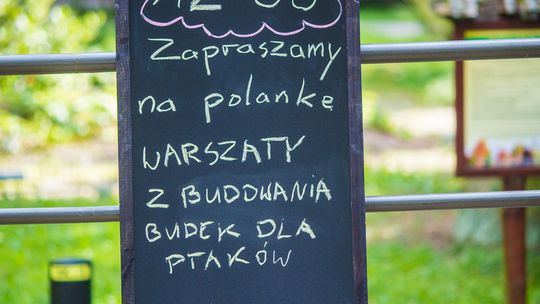 Zapraszamy
na polankę
WARSZATY
Z BUDOWANIA
BUDEK DLA
PTAKÓW